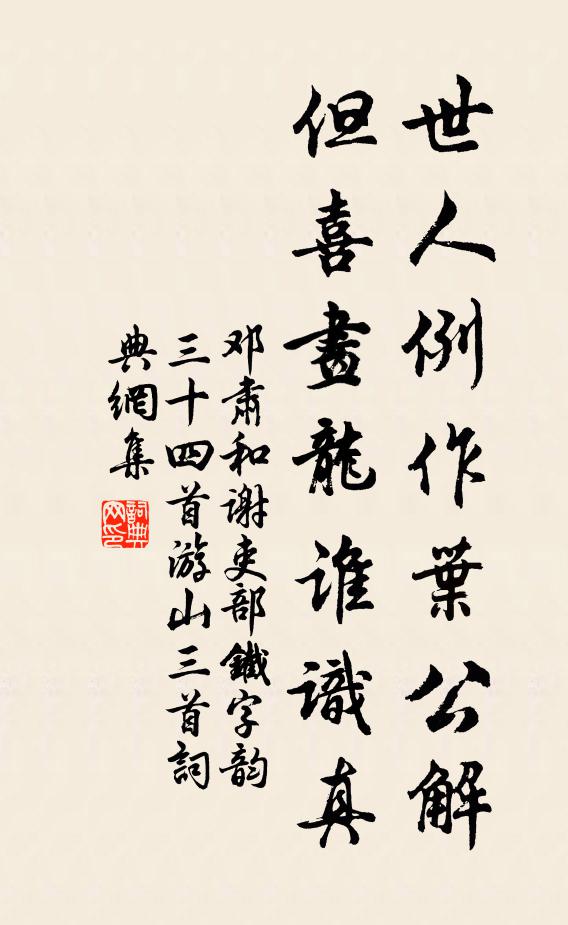 世人例作葉公解
但喜畫龍誰識真
邓肅和谢吏部鐵字韵
三十四首游山三首詞
典網集
詞典
网印